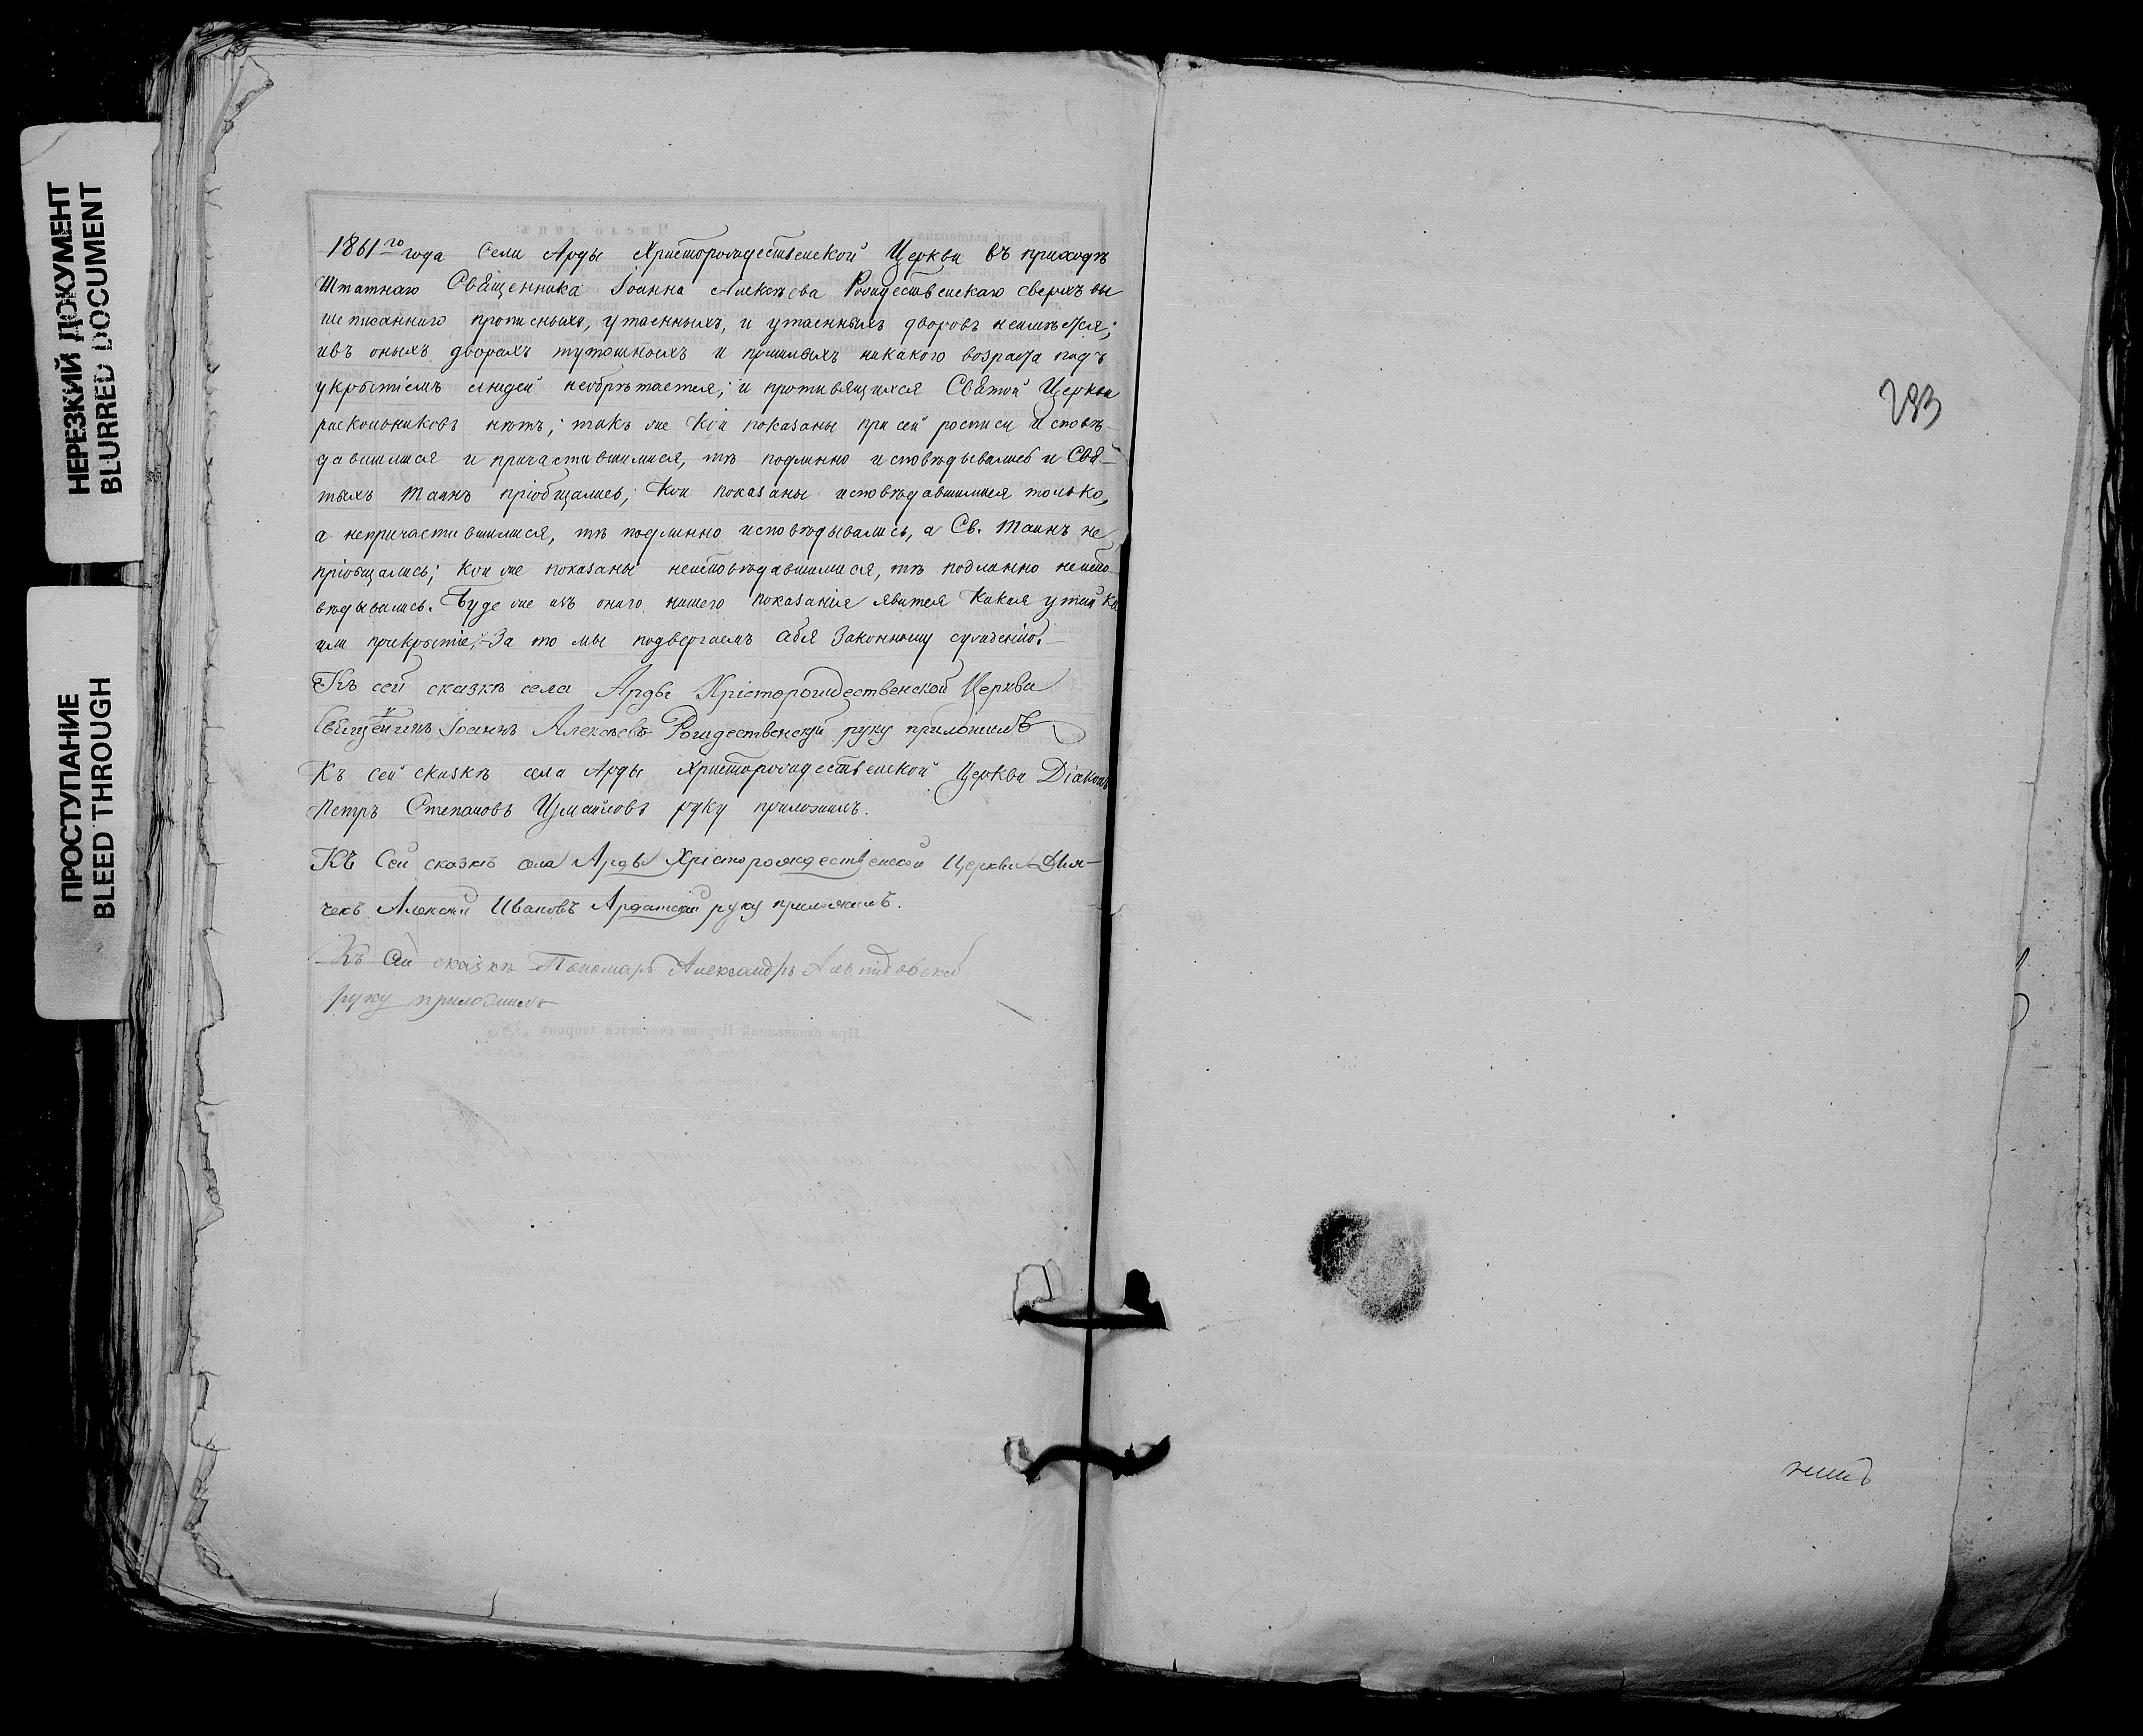 НЕРЕЗКИЙ ДОКУМЕНТ
BLURRED DOCUMENT
ПРОСТУПАНИЕ
BLEED THROUGH
1861го года Села Арды Христорождественской Церкви въ приходѣ
Штатнаго Священника Іоанна Алексѣева Рождественскаго сверхъ вы
шеписаннаго прописныхъ, утаенныхъ, и утаенныхъ дворовъ неимѣется;
ивъ оныхъ дворахъ тутошныхъ и пришлыхъ никакого возраста подъ
укрытіемъ людей необрѣтается; и противящихся Святой Церкви
раскольниковъ нѣтъ; такъ же кои показаны при сей росписи исповѣ-
давшимися и причастившимися, тѣ подлинно исповѣдывались и Свя-
тыхъ Таинъ пріобщались; Кои показаны исповѣдавшимися только,
а непричастившимися, тѣ подлинно исповѣдывались, а Св. Таинъ не
пріобщались; кои же показаны неисповѣдавшимися, тѣ подлинно неиспо-
вѣдывались. Буде же изъ онаго нашего показанія явится какая утайка
или прикрытіе;-За то мы подвергаемъ себя Законному сужденію.
Къ сей сказкѣ села Арды Хрісторождественской Церкви
Священникъ Іоаннъ Алексѣевъ Рождественскій руку приложилъ
Къ сей сказкѣ села Арды Христорождественской Церкви Діаконъ
Петръ Степановъ Измайловъ руку приложилъ.
Къ Сей сказкѣ села Арды Хрісторождественской Церкви Дья-
чекъ Алексѣй Ивановъ Ардатскій руку приложилъ.
Къ Сей сказкѣ Пономарь Александръ
руку приложилъ
При означенной Церкви считается дворовъ
283